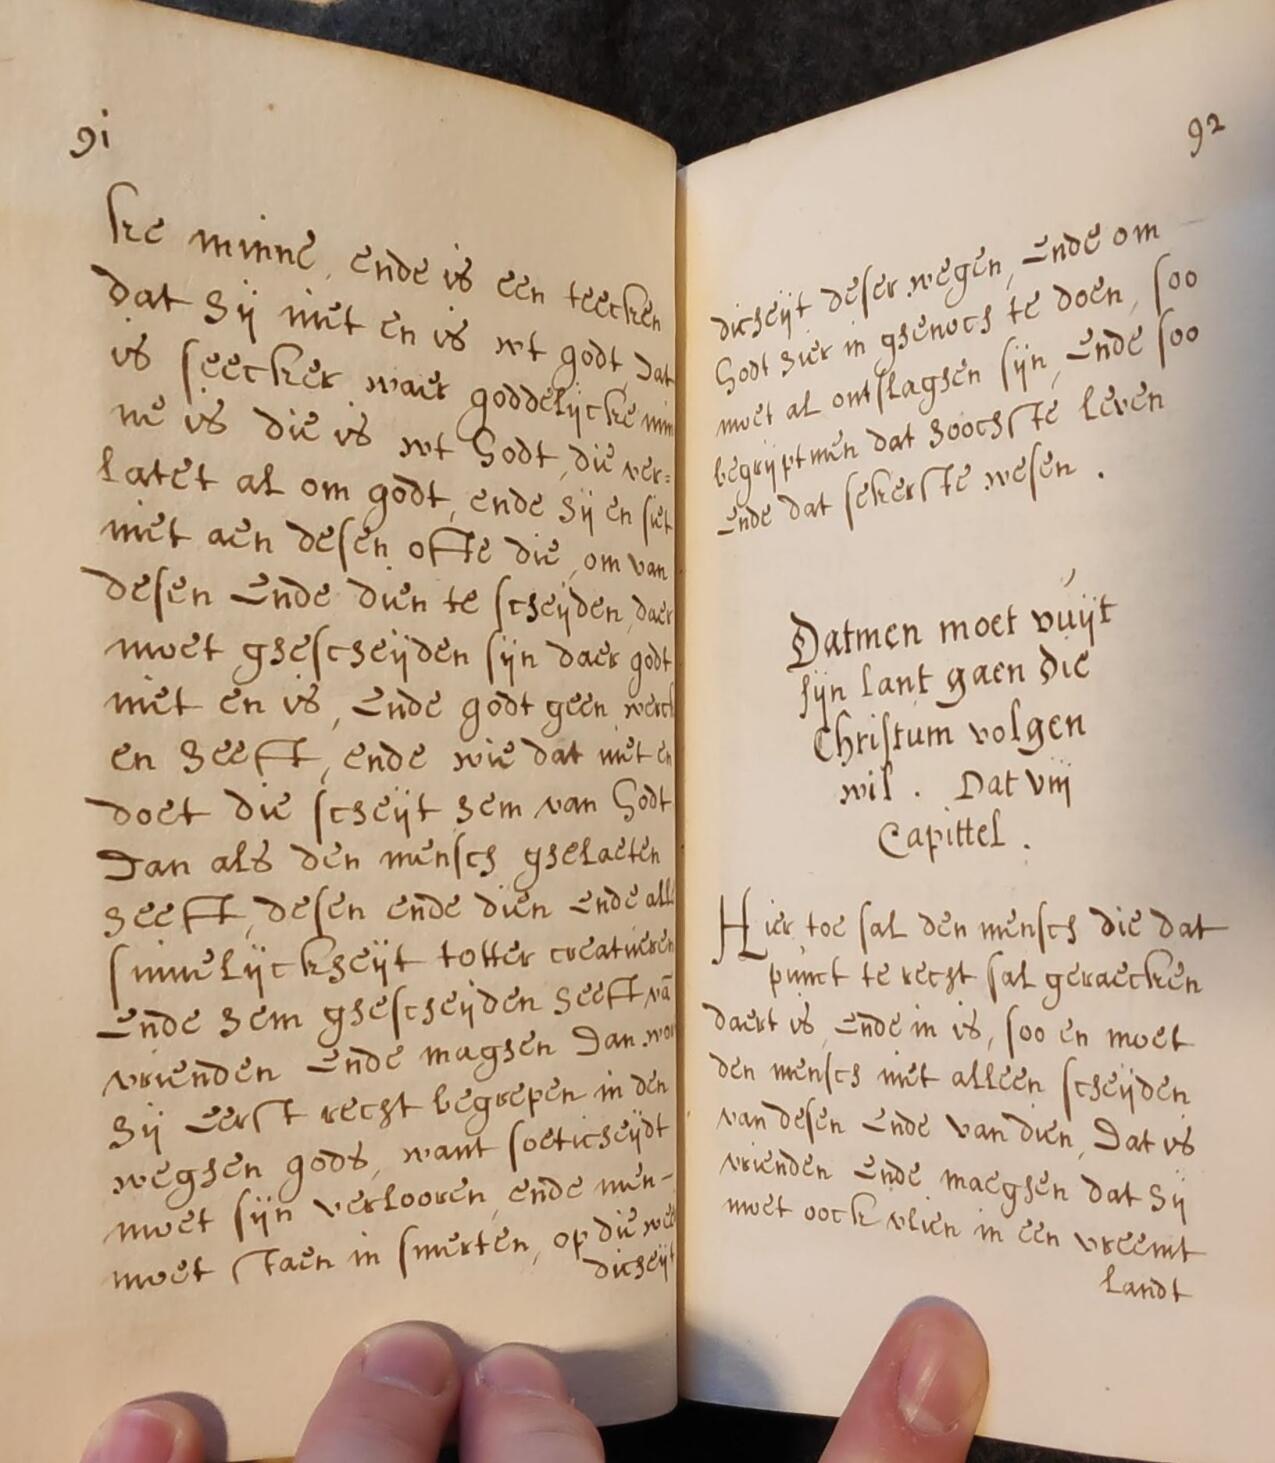 91
ke minne, ende is een teecken
dat hij niet en is wt godt, dat
is seecker waer goddelijcke min
ne is die is wt Godt, die ver=
latet al om godt, ende hij en siet
niet aen desen ofte die, om van
desen Ende dien te scheijden, daer
moet ghescheijden sijn daer godt
niet en is, Ende godt geen werck
en heeft, ende wie dat niet en
doet die scheijt hem van Godt
Dan als den mensch ghelaeten
heeft, desen ende dien Ende alle
sinnelijckheijt totter creatueren
Ende hem ghescheijden heeft vā
vrienden Ende maghen Dan wor
hij Eerst recht begrepen in den
weghen gods, want soeticheijdt
moet sijn verlooren, ende men-
moet staen in smerten, op die we
dicheijt
92
dicheijt deser wegen, Ende om
Godt hier in ghenoch te doen, soo
moet al ontslaghen sijn, Ende soo
begrijptmen dat hoochste leven
Ende dat sekerste wesen .
Datmen moet vuijt
sijn lant gaen die
Christum volgen
wil . Dat viij
Capittel .
Hier toe sal den mensch die dat
punct te recht sal geraecken
daert is, Ende in is, soo en moet
den mensch niet alleen scheijden
van desen Ende van dien, Dat is
vrienden Ende maeghen dat hij
moet oock vlien in een vreemt
landt